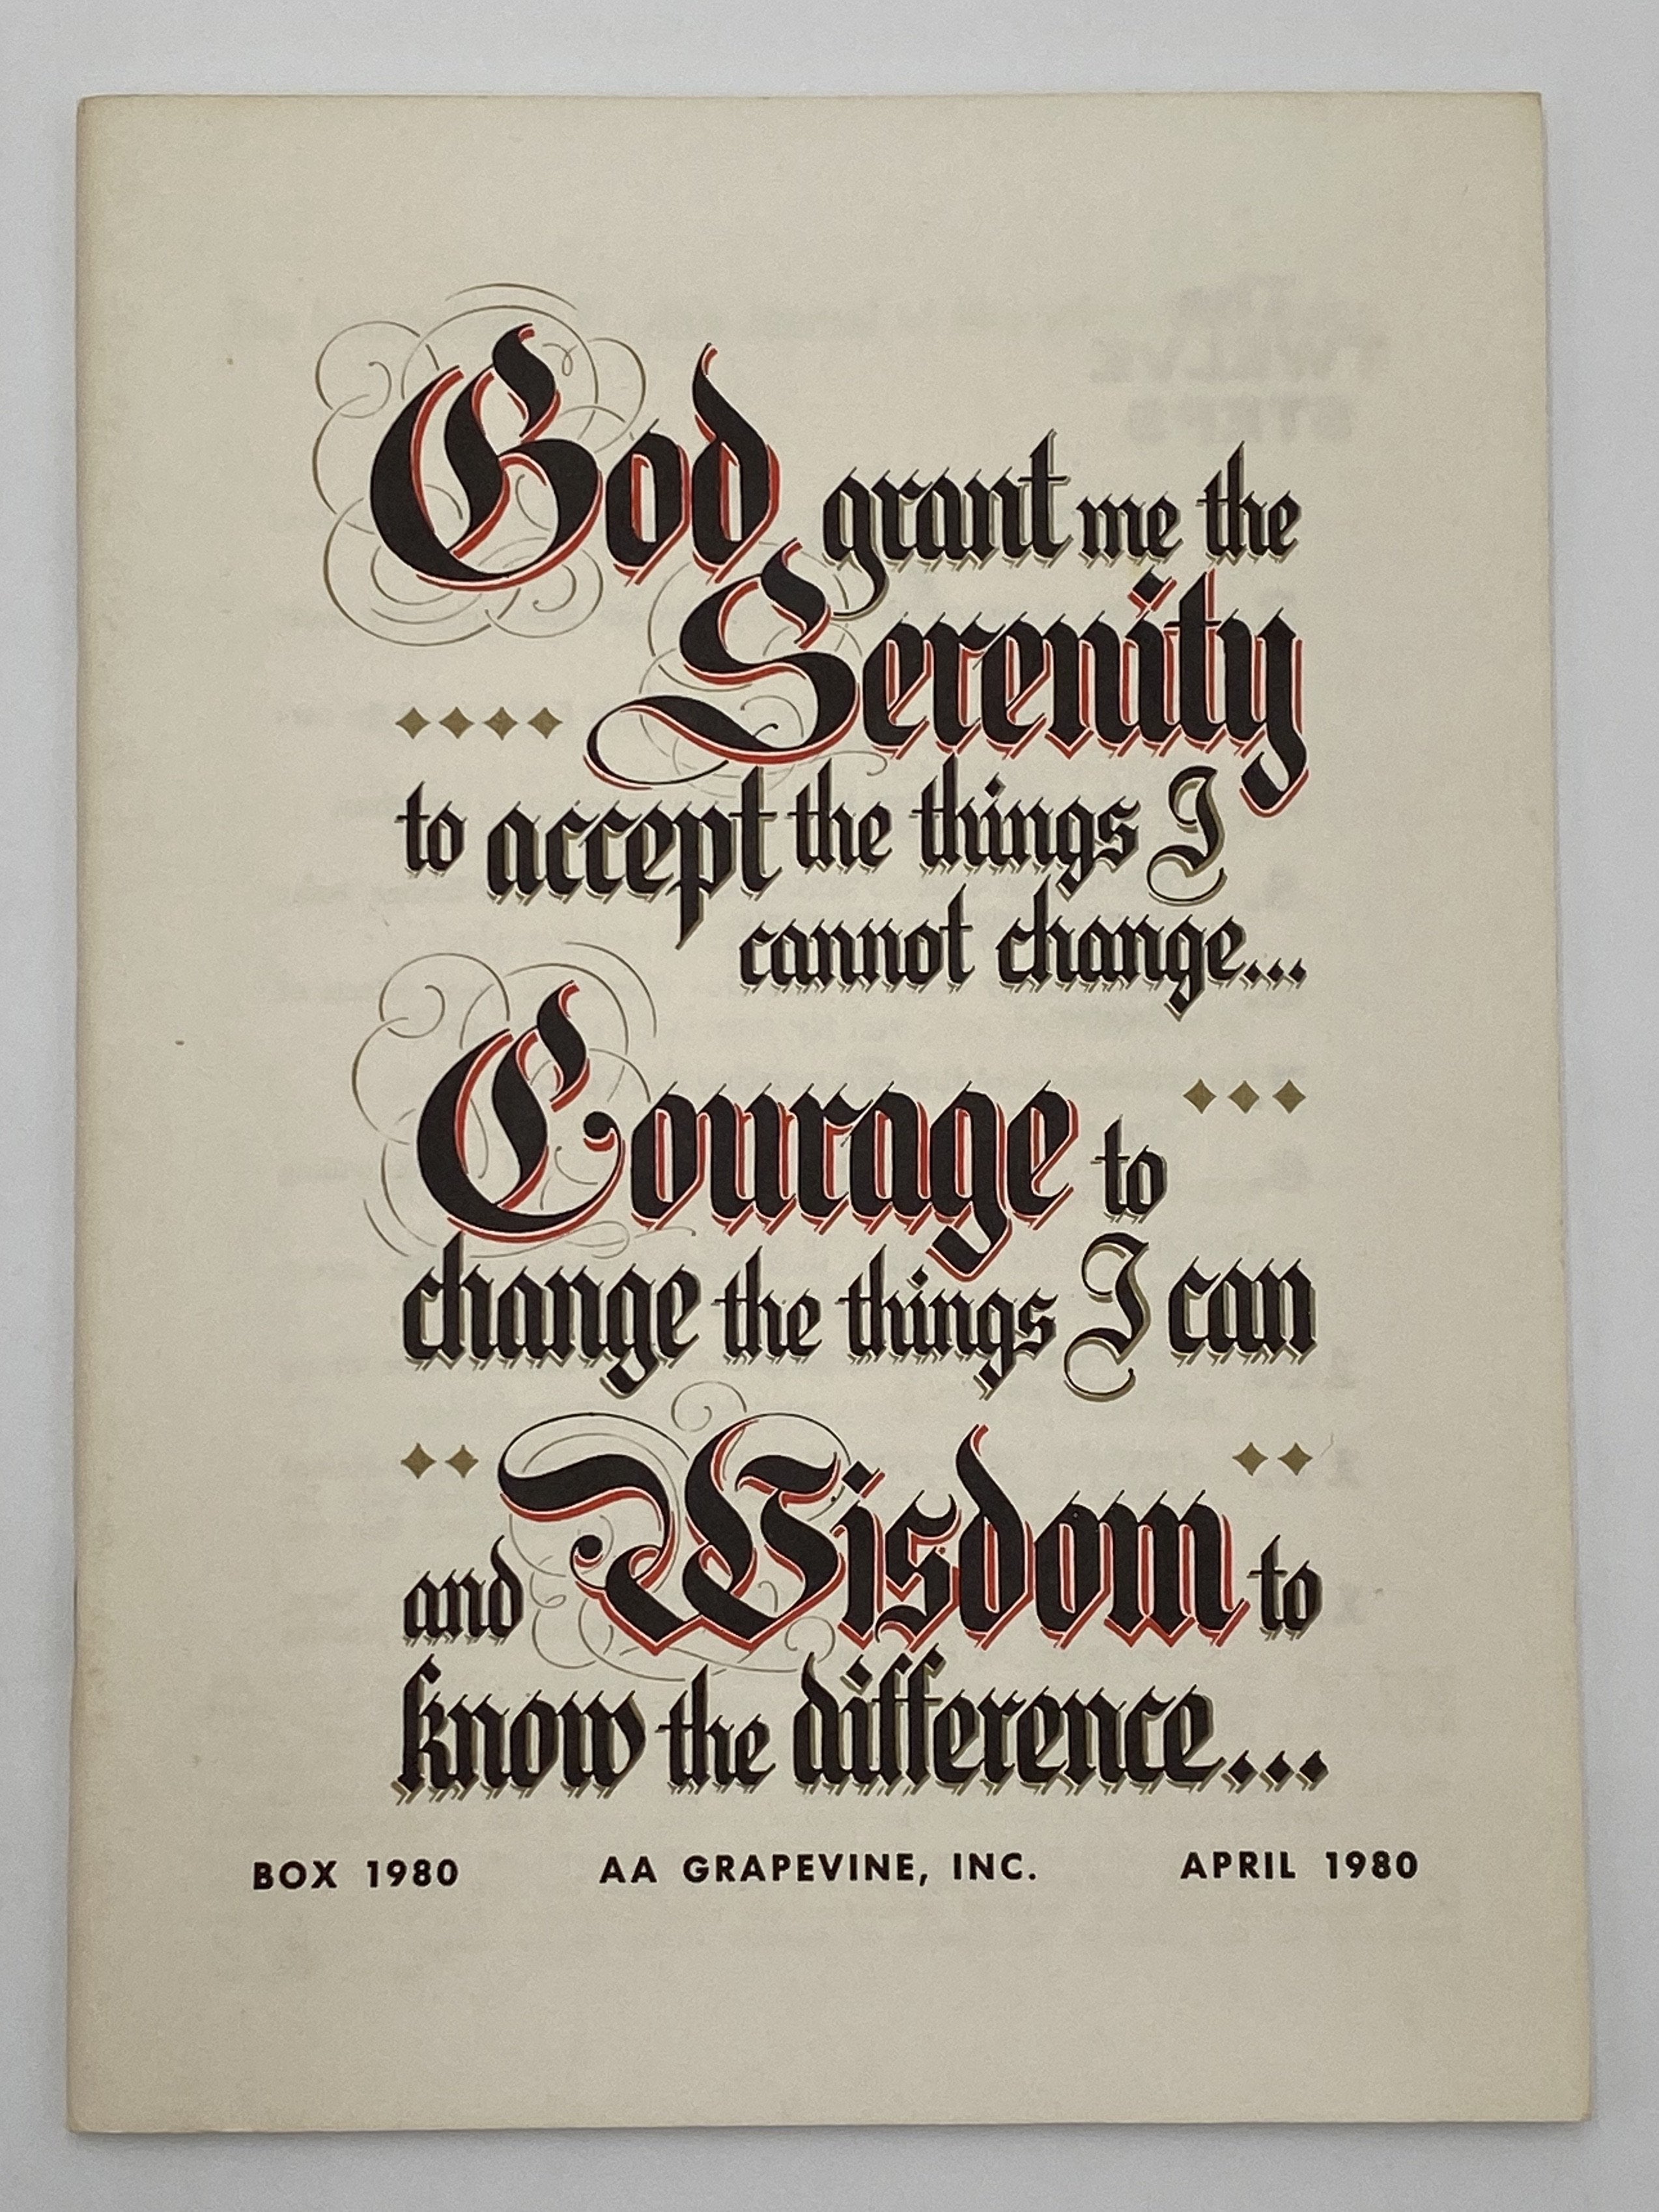 God grant me the
Serenity
to accept the things I
cannot change...
Courage to
change the things I can
and Wisdom to
know the difference...
BOX 1980 AA GRAPEVINE, INC. APRIL 1980